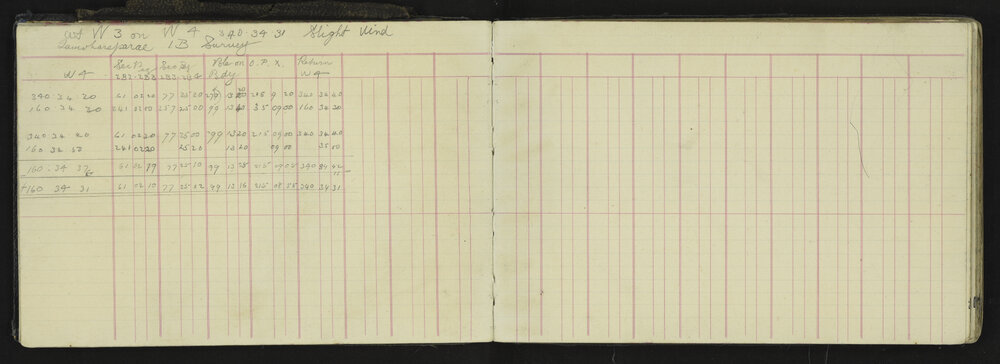 at W 3 on W 4 340.34.31 Slight Wind
1B Survey
Sec Peg Sec Peg Pole on O.P.X. Return
W4 282.283 283.284 Bdy W4
340.34.20 61 02 20 77 25 20 279 13 20 215 9 20 340 34 40
160.34.30 241 02 00 257 25 00 99 13 35 09 00 160 34 30
340 34 40 61 02 20 77 25 00 99 13 20 215 09 00 340 34 40
160 34 50 241 02 20 25 20 13 20 09 00 35 00
160.34 61 02 77 25 10 99 13 25 215 09 05 340 34 42
160 34 31 61 02 10 77 25 12 99 13 16 215 08 58 340 34 31